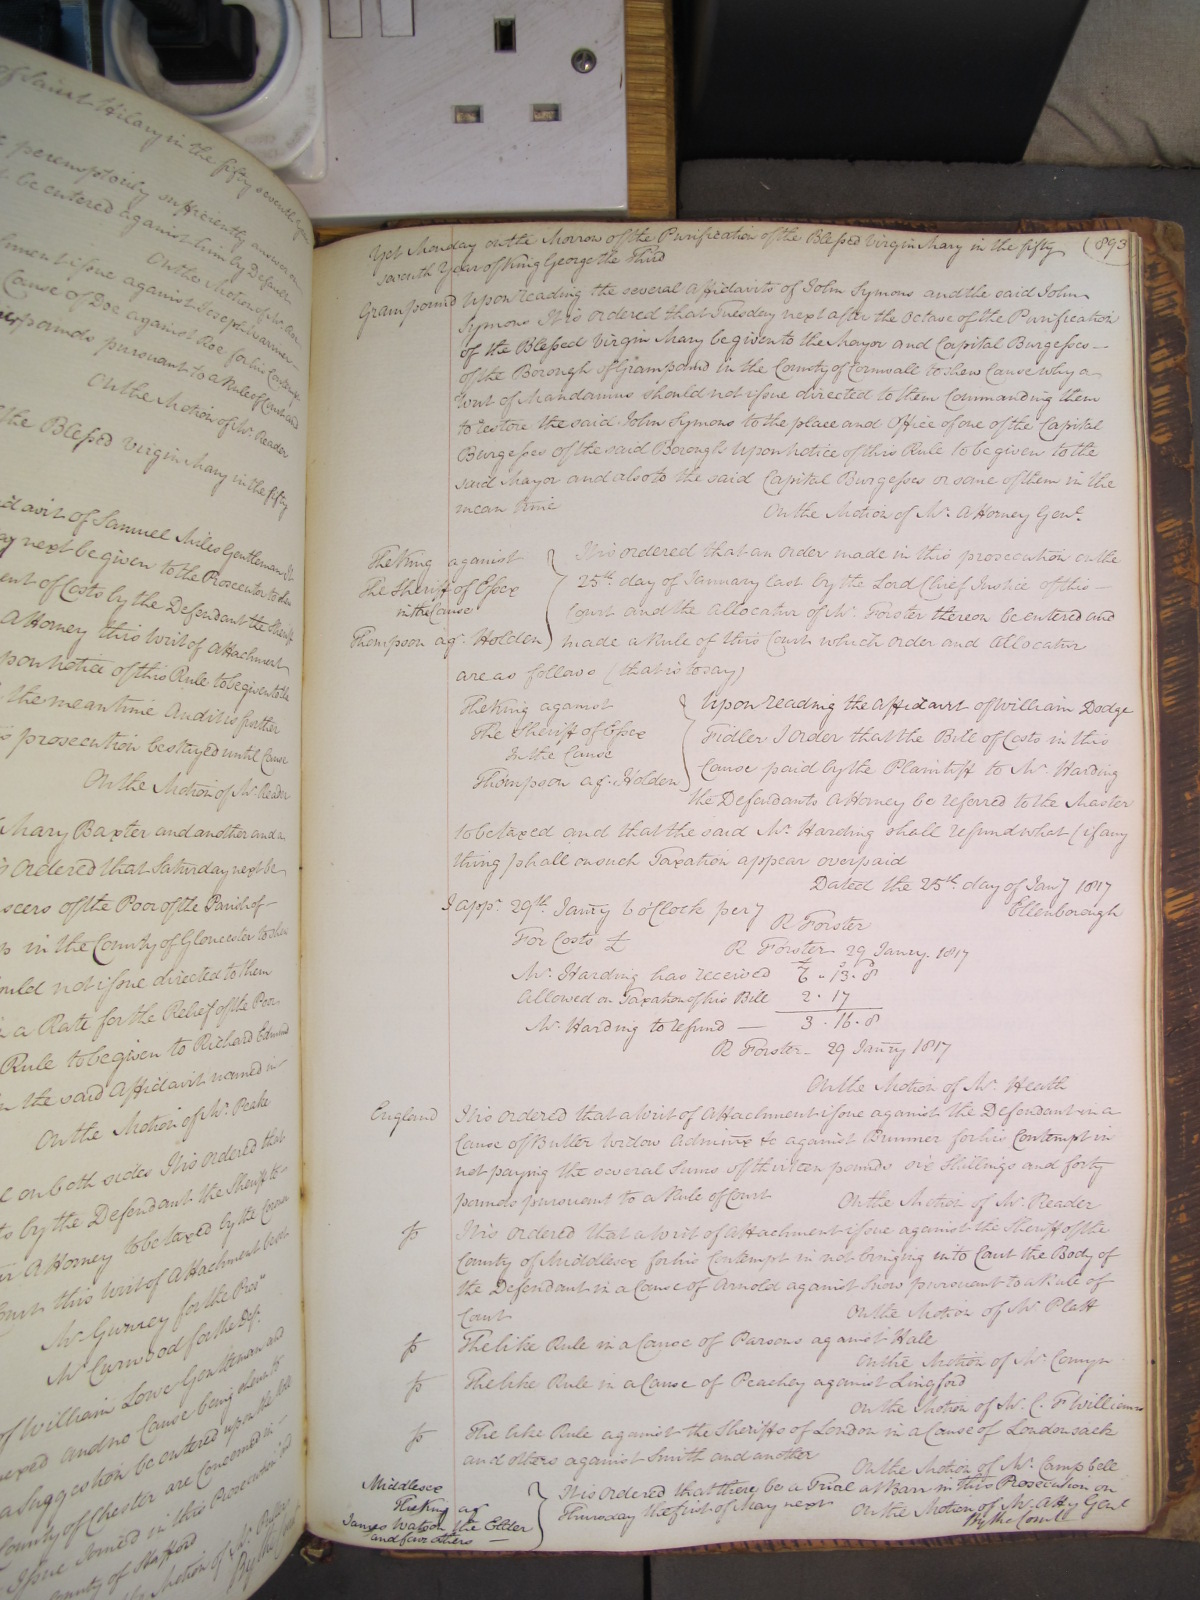 of Saint Hilary in the fifty seventh Year
peremptorily sufficiently answer
be entered against him by Default
On the Motion of Mr.
issue against Joseph Warner
Cause of Doe against Roe for his Contempt
pounds pursuant to a Rule of Court
On the Motion of Mr. Reader
the Blessed Virgin Mary in the fifty
Affidavit of Samuel Miles Gentleman It
next be given to the Prosecutor to shew
of Costs by the Defendant the Sheriff
Attorney this Writ of Attachment
upon notice of this Rule to be given to the
the mean time And it is further
prosecution be stayed until Cause
On the Motion of Mr. Reader
Mary Baxter and another and a
ordered that Saturday next be
of the Poor of the Parish of
in the County of Gloucester to shew
should not issue directed to them
a Rate for the Relief of the Poor
Rule to be given to Richard Edmund
in the said Affidavit named in
On the Motion of Mr. Peake
on both sides It is ordered that
by the Defendant the Sheriff to
Attorney to be taxed by the Corona
this Writ of Attachment
Mr. Gurney for the Pros.
Mr. Curwood for the Def.
of William Lowe Gentleman and
and no Cause being shewn to
a Suggestion be entered upon the
County of Chester are Concerned in
Issue joined in this Prosecution
County of Stafford
Motion of Mr.
By the Court
Yet Monday on the Morrow of the Purification of the Blessed Virgin Mary in the fifty (893
seventh Year of King George the Third
Grampound Upon reading the several Affidavits of John Symons and the said John
Symons It is ordered that Tuesday next after the Octave of the Purification
of the Blessed Virgin Mary be given to the Mayor and Capital Burgesses
of the Borough of Grampound in the County of Cornwall to shew Cause why a
Writ of Mandamus should not issue directed to them Commanding them
to restore the said John Symons to the place and Office of one of the Capital
Burgesses of the said Borough upon notice of this Rule to be given to the
said Mayor and also to the said Capital Burgesses or some of them in the
mean time On the Motion of Mr. Attorney Genl.
The King against } It is ordered that an order made in this prosecution on the
The Sheriff of Essex 25th. day of January last by the Lord Chief Justice of this
in the Cause Court and the Allocatur of Mr. Forster thereon be entered and
Thompson agt. Holden made a Rule of this Court which order and Allocatur
are as follows (that is to say)
The King against } Upon reading the Affidavit of William Dodge
The Sheriff of Essex Fidler I Order that the Bill of Costs in this
In the Cause Cause paid by the Plaintiff to Mr. Harding
Thompson agt. Holden the Defendants Attorney be referred to the Master
to be taxed and that the said Mr. Harding shall refund what (if any
thing) shall on such Taxation appear overpaid
Dated the 25th. day of Jany 1817
Ellenborough
I appt. 29th. Janry 6 o'Clock per7 R Forster
For Costs £ R Forster 29 Janry. 1817
Mr. Harding has received £6 . 13s . 8d
Allowed on Taxation of his Bill 2 . 17
Mr. Harding to refund — 3 . 16 . 8
R Forster – 29 Janry 1817
On the Motion of Mr. Heath
England It is ordered that a Writ of Attachment issue against the Defendant in a
Cause of Butler Widow Adminx &c against Brunner for his Contempt in
not paying the several Sums of thirteen pounds six Shillings and forty
pounds pursuant to a Rule of Court On the Motion of Mr. Reader
Jo It is ordered that a Writ of Attachment issue against the Sheriff of the
County of Middlesex for his Contempt in not bringing into Court the Body of
the Defendant in a Cause of Arnold against Snow pursuant to a Rule of
Court On the Motion of Mr. Platt
Jo The like Rule in a Cause of Parsons against Hale
On the Motion of Mr. Comyn
Jo The like Rule in a Cause of Peachey against Lingford
On the Motion of Mr. C. F Williams
Jo The like Rule against the Sheriffs of London in a Cause of Londonsack
and others against Smith and another
On the Motion of Mr. Campbell
Middlesex } It is ordered that there be a Trial at Bar in this Prosecution on
The King agt Thursday the first of May next On the Motion of Mr. Atty Genl
James Watson the Elder By the Court
and four others